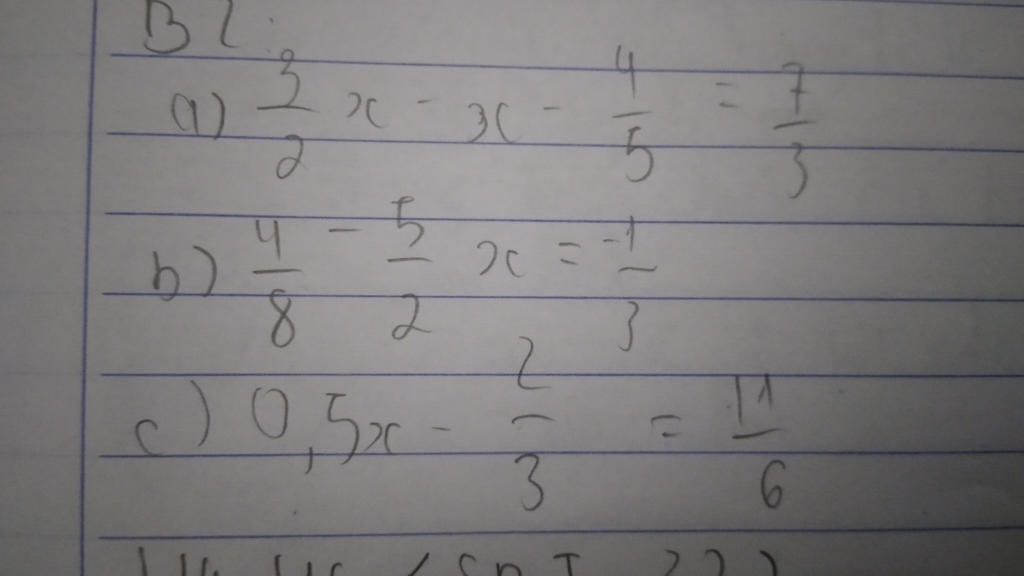 B2.
a) 3/2 x - x - 4/5 = 7/3
b) 4/8 - 5/2 x = -1/3
c) 0,5x - 2/3 = 11/6